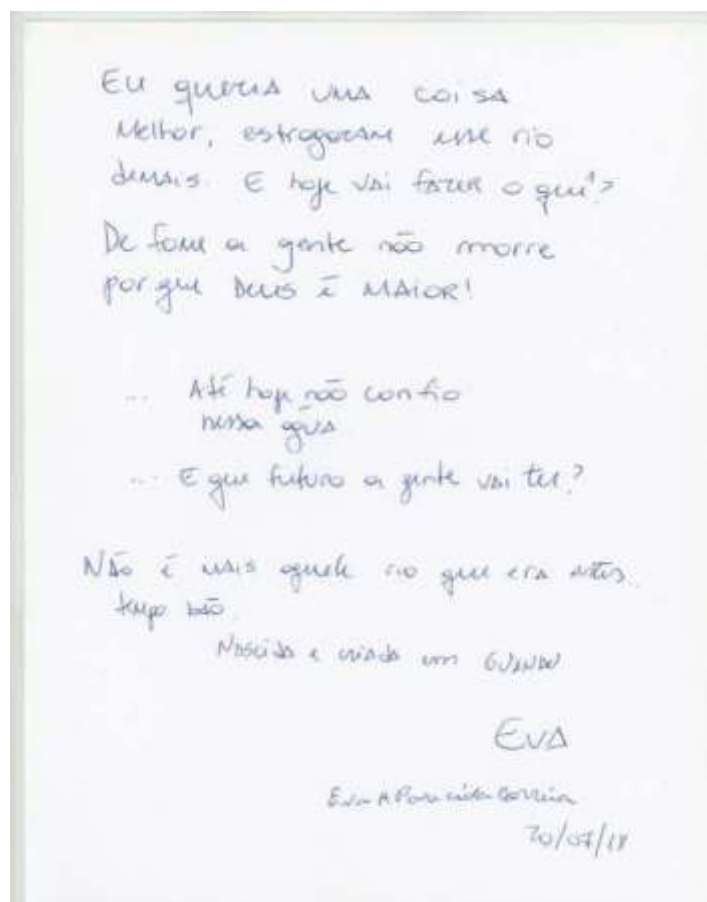 Eu queria uma coisa
Melhor, estragaram esse rio
demais. E hoje vai fazer o quê?
De fome a gente não morre
porque Deus é MAIOR!
... Até hoje não confio
nessa água
... E que futuro a gente vai ter?
Não é mais aquele rio que era antes.
tempo bão.
Nascida e criada em
EVA
Eva Aparecida Correia
20/07/18